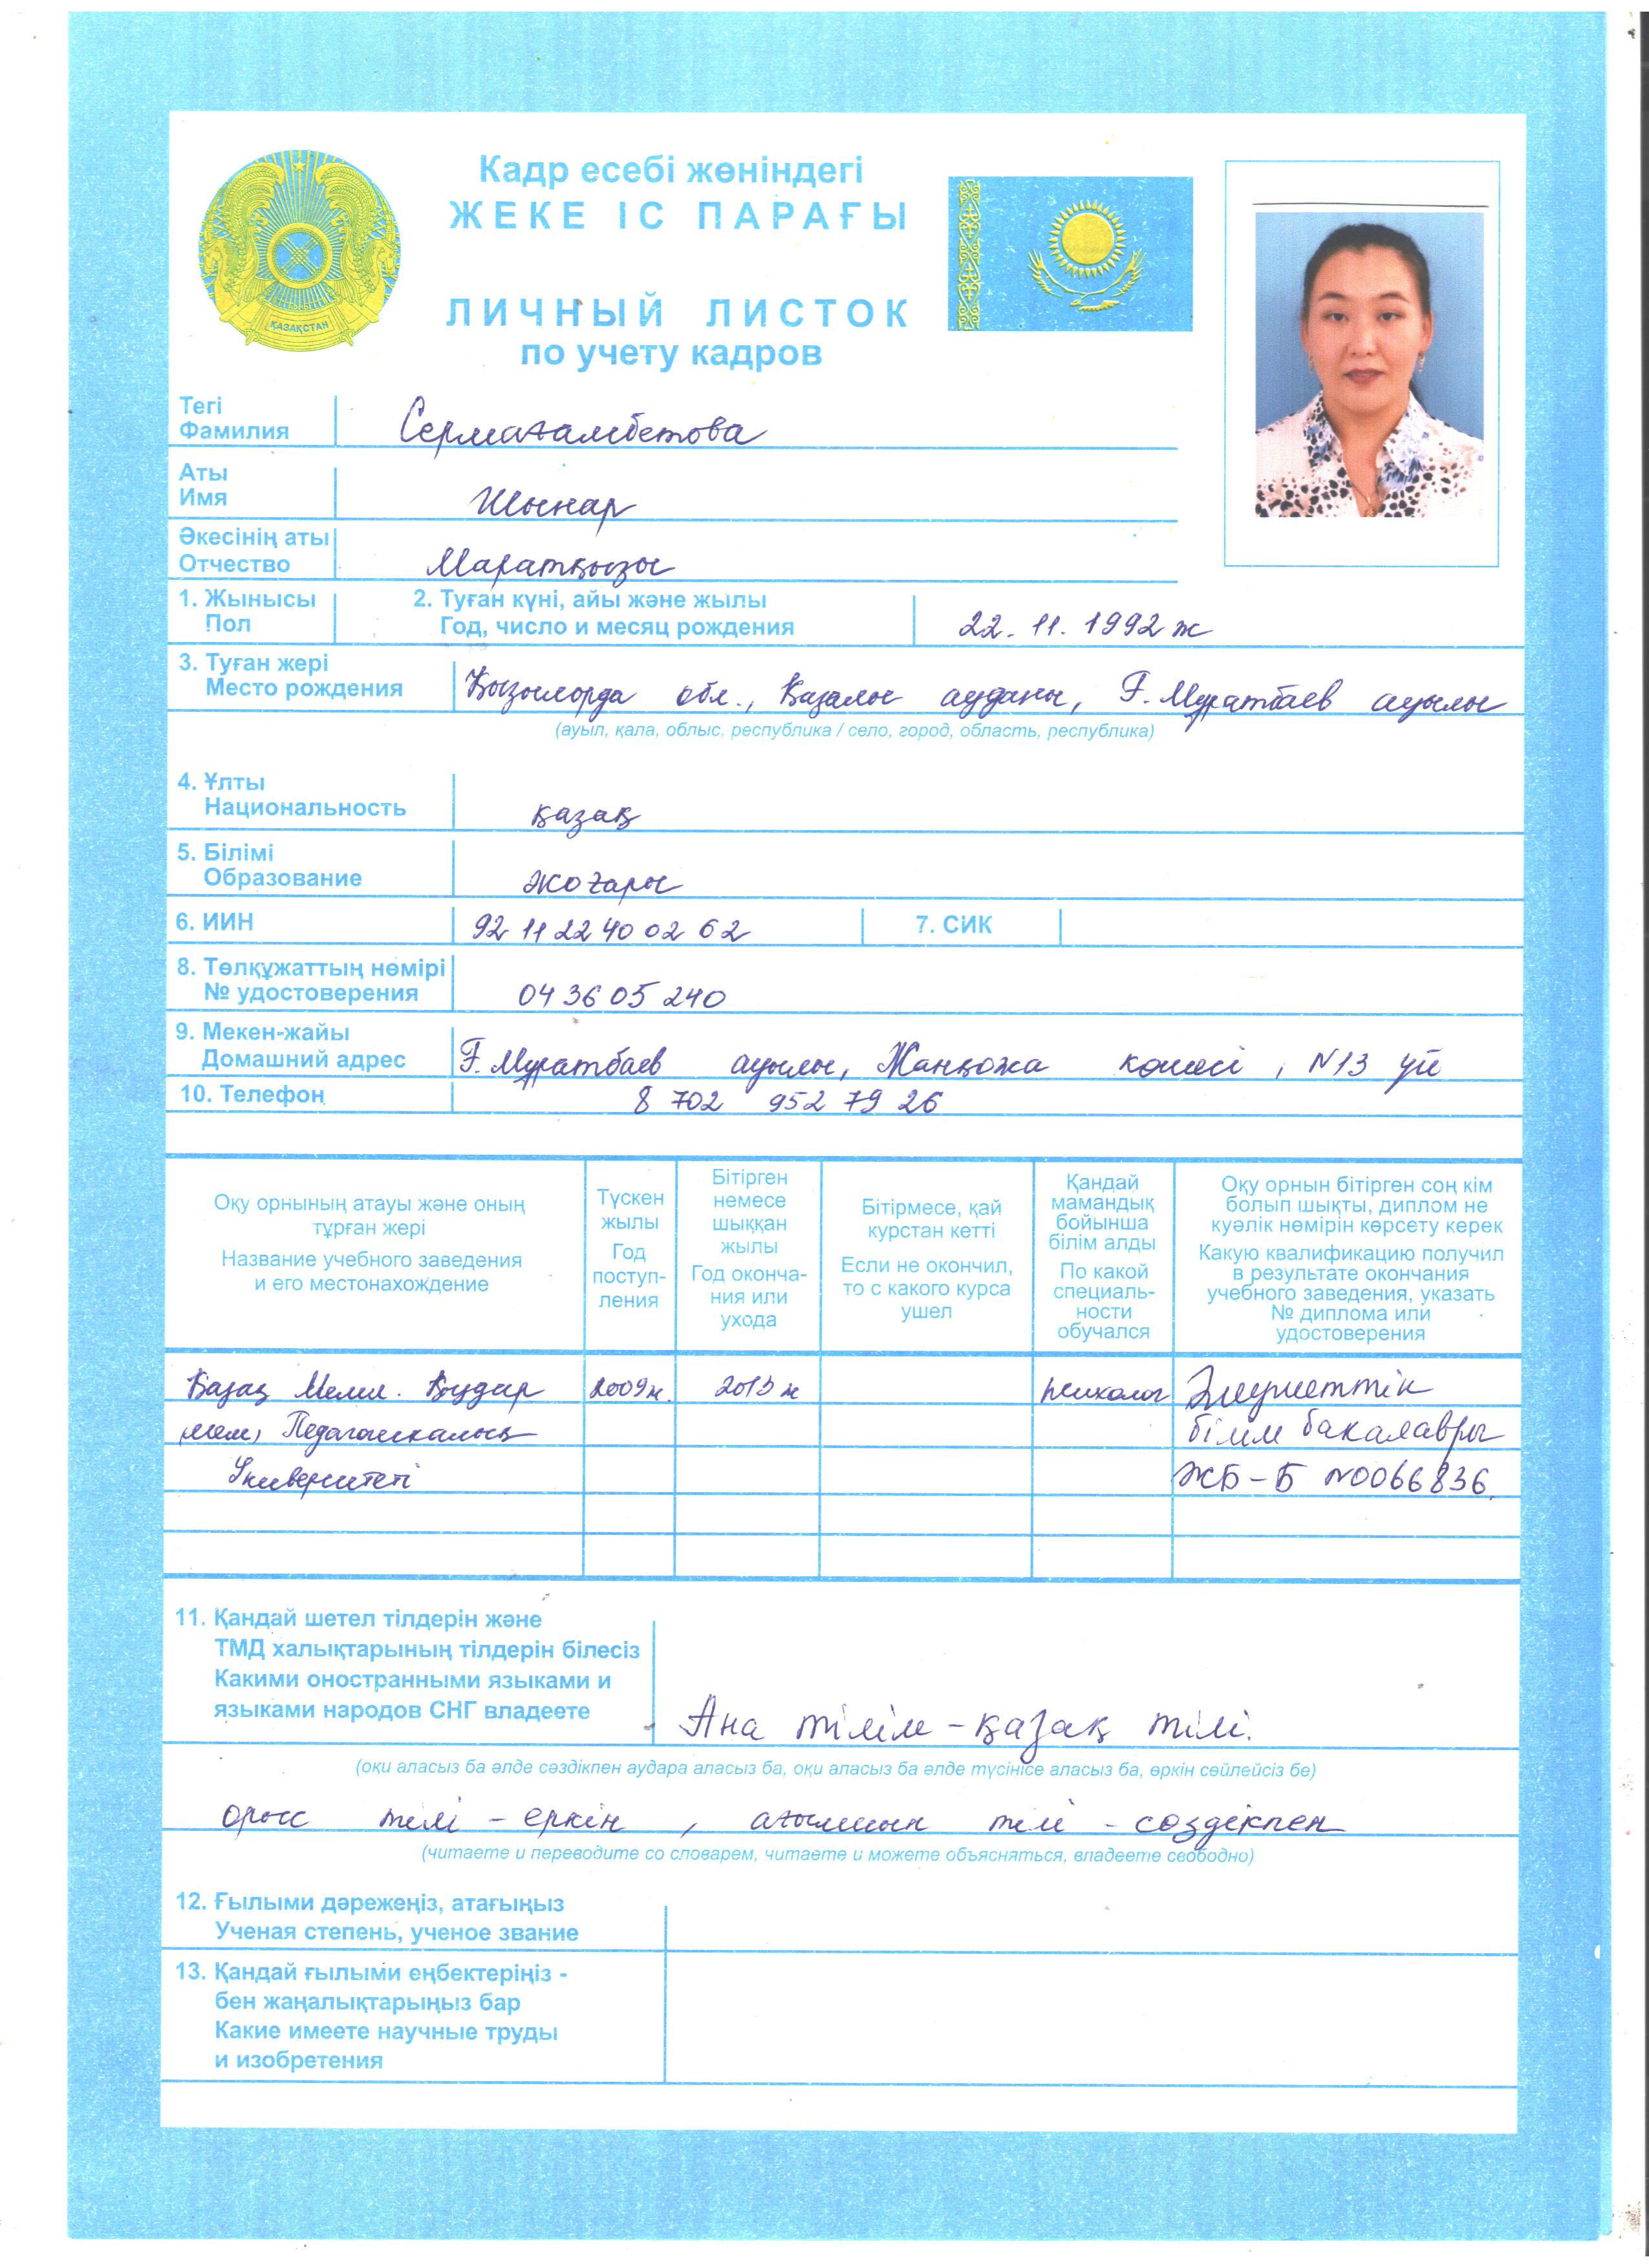 Кадр есебі жөніндегі
ЖЕКЕ ІС ПАРАҒЫ
ЛИЧНЫЙ ЛИСТОК
по учету кадров
ҚАЗАҚСТАН
Тегі
Фамилия
Сермағамбетова
Аты
Имя
Шынар
Әкесінің аты
Отчество
Маратқызы
1. Жынысы
Пол
2. Туған күні, айы және жылы
Год, число и месяц рождения
22. 11. 1992 ж
3. Туған жері
Место рождения
Қызылорда обл., Қазалы ауданы, Ғ. Мұратбаев ауылы
(ауыл, қала, облыс, республика / село, город, область, республика)
4. Ұлты
Национальность
қазақ
5. Білімі
Образование
жоғары
6. ИИН
92 11 22 40 02 62
7. СИК
8. Төлқұжаттың нөмірі
№ удостоверения
04 36 05 240
9. Мекен-жайы
Домашний адрес
Ғ. Мұратбаев ауылы, Жанқожа көшесі, N13 үй
10. Телефон
8 702 952 79 26
Оқу орнының атауы және оның
тұрған жері
Название учебного заведения
и его местонахождение
Түскен
жылы
Год
поступ-
ления
Бітірген
немесе
шыққан
жылы
Год оконча-
ния или
ухода
Бітірмесе, қай
курстан кетті
Если не окончил,
то с какого курса
ушел
Қандай
мамандық
бойынша
білім алды
По какой
специаль-
ности
обучался
Оқу орнын бітірген соң кім
болып шықты, диплом не
куәлік нөмірін көрсету керек
Какую квалификацию получил
в результате окончания
учебного заведения, указать
№ диплома или
удостоверения
Қазақ Мемл. Қыздар 2009 ж. 2013 ж психолог Әлеуметтік
мем, Педагогикалық білім бакалавры
Университеті ЖБ-Б N0066836
11. Қандай шетел тілдерін және
ТМД халықтарының тілдерін білесіз
Какими оностранными языками и
языками народов СНГ владеете
Ана тілім - қазақ тілі.
(оқи аласыз ба әлде сөздікпен аудара аласыз ба, оқи аласыз ба әлде түсінісе аласыз ба, еркін сөйлейсіз бе)
орыс тілі - еркін, ағылшын тілі - сөздікпен
(читаете и переводите со словарем, читаете и можете объясняться, владеете свободно)
12. Ғылыми дәрежеңіз, атағыңыз
Ученая степень, ученое звание
13. Қандай ғылыми еңбектеріңіз -
бен жаңалықтарыңыз бар
Какие имеете научные труды
и изобретения